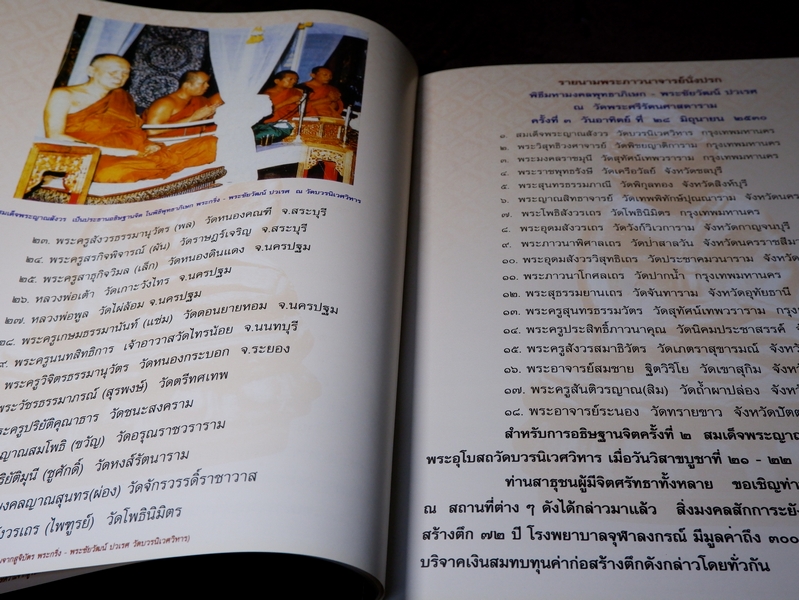 สมเด็จพระญาณสังวร เป็นประธานอธิษฐานจิต ในพิธีพุทธาภิเษก พระกริ่ง - พระชัยวัฒน์ ปวเรศ ณ วัดบวรนิเวศวิหาร
๒๓. พระครูสังวรธรรมานุวัตร (พล) วัดหนองคณฑี จ.สระบุรี
๒๔. พระครูสรกิจพิจารณ์ (ผัน) วัดราษฎร์เจริญ จ.สระบุรี
๒๕. พระครูสาธุกิจวิมล (เล็ก) วัดหนองดินแดง จ.นครปฐม
๒๖. หลวงพ่อเต้า วัดเกาะวังไทร จ.นครปฐม
๒๗. หลวงพ่อพูล วัดไผ่ล้อม จ.นครปฐม
๒๘. พระครูเกษมธรรมานันท์ (แช่ม) วัดดอนยายหอม จ.นครปฐม
๙. พระครูนนทสิทธิการ เจ้าอาวาสวัดไทรน้อย จ.นนทบุรี
พระครูวิจิตรธรรมานุวัตร วัดหนองกระบอก จ.ระยอง
พระวัชรธรรมาภรณ์ (สุรพงษ์) วัดตรีทศเทพ
ระครูปริยัติคุณาธาร วัดชนะสงคราม
ญาณสมโพธิ (ขวัญ) วัดอรุณราชวราราม
ริยัติมุนี (ชูศักดิ์) วัดหงส์รัตนาราม
มงคลญาณสุนทร(ผ่อง) วัดจักรวรรดิ์ราชาวาส
ังวรเถร (ไพฑูรย์) วัดโพธินิมิตร
จากสูจิบัตร พระกริ่ง - พระชัยวัฒน์ ปวเรศ วัดบวรนิเวศวิหาร)
รายนามพระภาวนาจารย์นั่งปรก
พิธีมหามงคลพุทธาภิเษก - พระชัยวัฒน์ ปวเรศ
ณ วัดพระศรีรัตนศาสดาราม
ครั้งที่ ๓ วันอาทิตย์ ที่ ๒๘ มิถุนายน ๒๕๓๐
๑. สมเด็จพระญาณสังวร วัดบวรนิเวศวิหาร กรุงเทพมหานคร
๒. พระวิสุทธิวงศาจารย์ วัดพิชยญาติการาม กรุงเทพมหานคร
๓. พระมงคลราชมุนี วัดสุทัศน์เทพวราราม กรุงเทพมหานคร
๔. พระราชพุทธรังษี วัดเครือวัลย์ จังหวัดชลบุรี
๕. พระสุนทรธรรมภาณี วัดพิกุลทอง จังหวัดสิงห์บุรี
๖. พระญาณสิทธาจารย์ วัดเทพพิทักษ์ปุณณาราม จังหวัดนคร
๗. พระโพธิสังวรเถร วัดโพธินิมิตร กรุงเทพมหานคร
๘. พระอุดมสังวรเถร วัดวังก์วิเวการาม จังหวัดกาญจนบุรี
๙. พระภาวนาพิศาลเถร วัดป่าสาลวัน จังหวัดนครราชสีมา
๑๐. พระอุดมสังวรวิสุทธิเถร วัดประชาคมวนาราม จังหวั
๑๑. พระภาวนาโกศลเถร วัดปากน้ำ กรุงเทพมหานคร
๑๒. พระสุธรรมยานเถร วัดจันทาราม จังหวัดอุทัยธานี
๑๓. พระครูสุนทรธรรมวัตร วัดสุทัศน์เทพวราราม กรุง
๑๔. พระครูประสิทธิ์ภาวนาคุณ วัดนิคมประชาสรรค์ จั
๑๕. พระครูสังวรสมาธิวัตร วัดเภตราสุขารมณ์ จังหวั
๑๖. พระอาจารย์สมชาย ฐิตวิริโย วัดเขาสุกิม จังหวั
๑๗. พระครูสันติวรญาณ(สิม) วัดถ้ำผาปล่อง จังหวั
๑๘. พระอาจารย์ระนอง วัดทรายขาว จังหวัดปัตต
สำหรับการอธิษฐานจิตครั้งที่ ๒ สมเด็จพระญาณ
พระอุโบสถวัดบวรนิเวศวิหาร เมื่อวันวิสาขบูชาที่ ๒๑ - ๒๒
ท่านสาธุชนผู้มีจิตศรัทธาทั้งหลาย ขอเชิญท่า
ณ สถานที่ต่าง ๆ ดังได้กล่าวมาแล้ว สิ่งมงคลสักการะยัง
สร้างตึก ๗๒ ปี โรงพยาบาลจุฬาลงกรณ์ มีมูลค่าถึง ๓๐๐
บริจาคเงินสมทบทุนค่าก่อสร้างตึกดังกล่าวโดยทั่วกัน